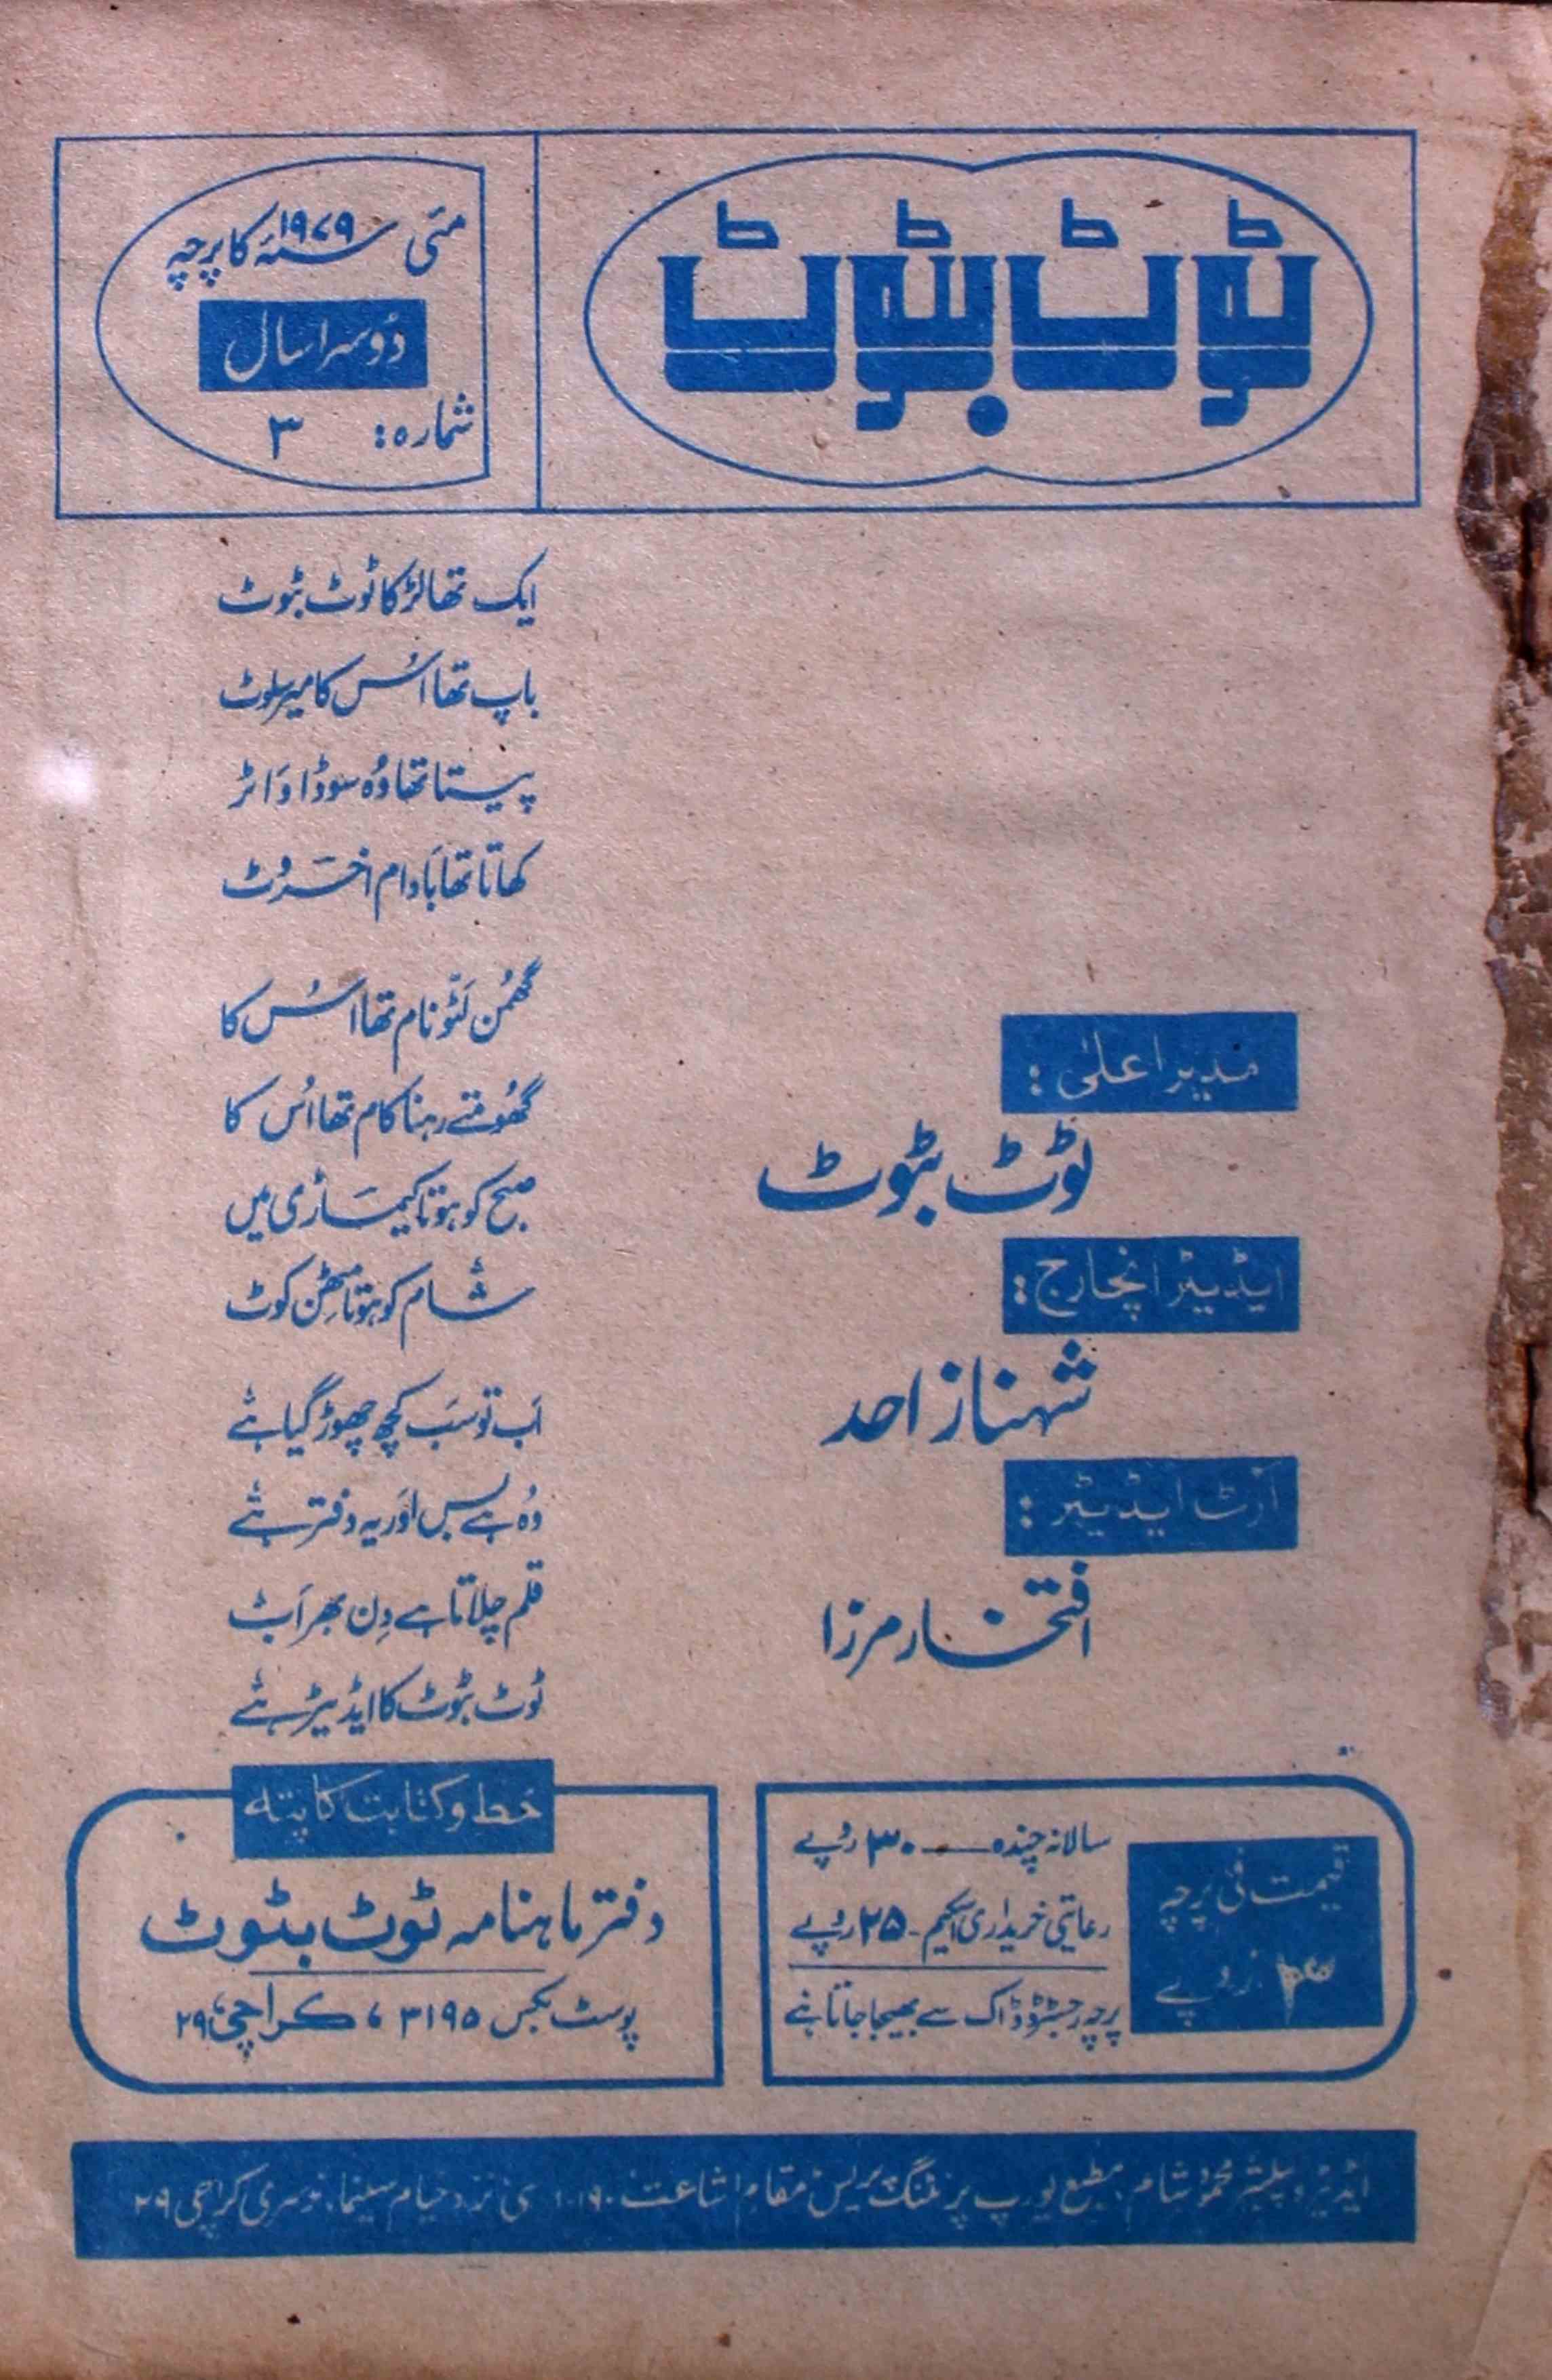 ٹوٹ بٹوٹ
مئی ۱۹۷۹ سنہ کا پرچہ
دُوسرا سال
شمارہ: ۳
ایک تھا لڑکا ٹوٹ بٹوٹ
باپ تھا اُس کا میر سلوٹ
پیتا تھا وُہ سوڈا واٹر
کھاتا تھا بادام اخروٹ
گھمن لٹو نام تھا اُس کا
گھُومتے رہنا کام تھا اُس کا
صبح کو ہوتا کیماڑی میں
شام کو ہوتا مِٹھن کوٹ
اَب تو سَب کچھ چھوڑ گیا ہے
وُہ ہے بس اور یہ دفتر ہے
قلم چلاتا ہے دِن بھر اَب
ٹوٹ بٹوٹ کا ایڈیٹر ہے
مدیر اعلیٰ:
ٹوٹ بٹوٹ
ایڈیٹر انچارج:
شہناز احمد
آرٹ ایڈیٹر:
افتخار مرزا
قیمت فی پرچہ
۳ روپے
سالانہ چندہ — ۳۰ روپے
رعایتی خریداری اسکیم - ۲۵ روپے
پرچہ رجسٹرڈ ڈاک سے بھیجا جاتا ہے
خط و کتابت کا پتہ
دفتر ماہنامہ ٹوٹ بٹوٹ
پوسٹ بکس ۳۱۹۵، کراچی ۲۹
ایڈیٹر و پبلشر محمود شام، مطبع یورپ پرنٹنگ پریس مقام اشاعت سی نزد خیام سینما، نرسری کراچی ۲۹